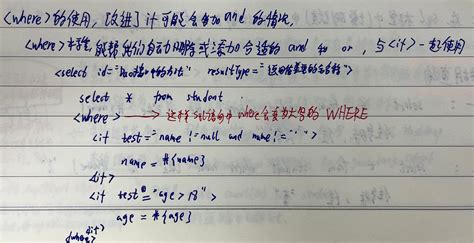 <where>的使用,改进了if可能会多加and的情况,
<where>标签,能帮我们自动删除或添加合适的 and 和 or,与<if>一起使用
<select id="Dao接口中的方法" resultType="返回值类型的全名称">
select * from student
<where> → 这样sql语句中where会变为大写的 WHERE
<if test="name != null and name != ' '">
name = #{name}
</if>
<if test="age > 18">
age = #{age}
</if>
</where>